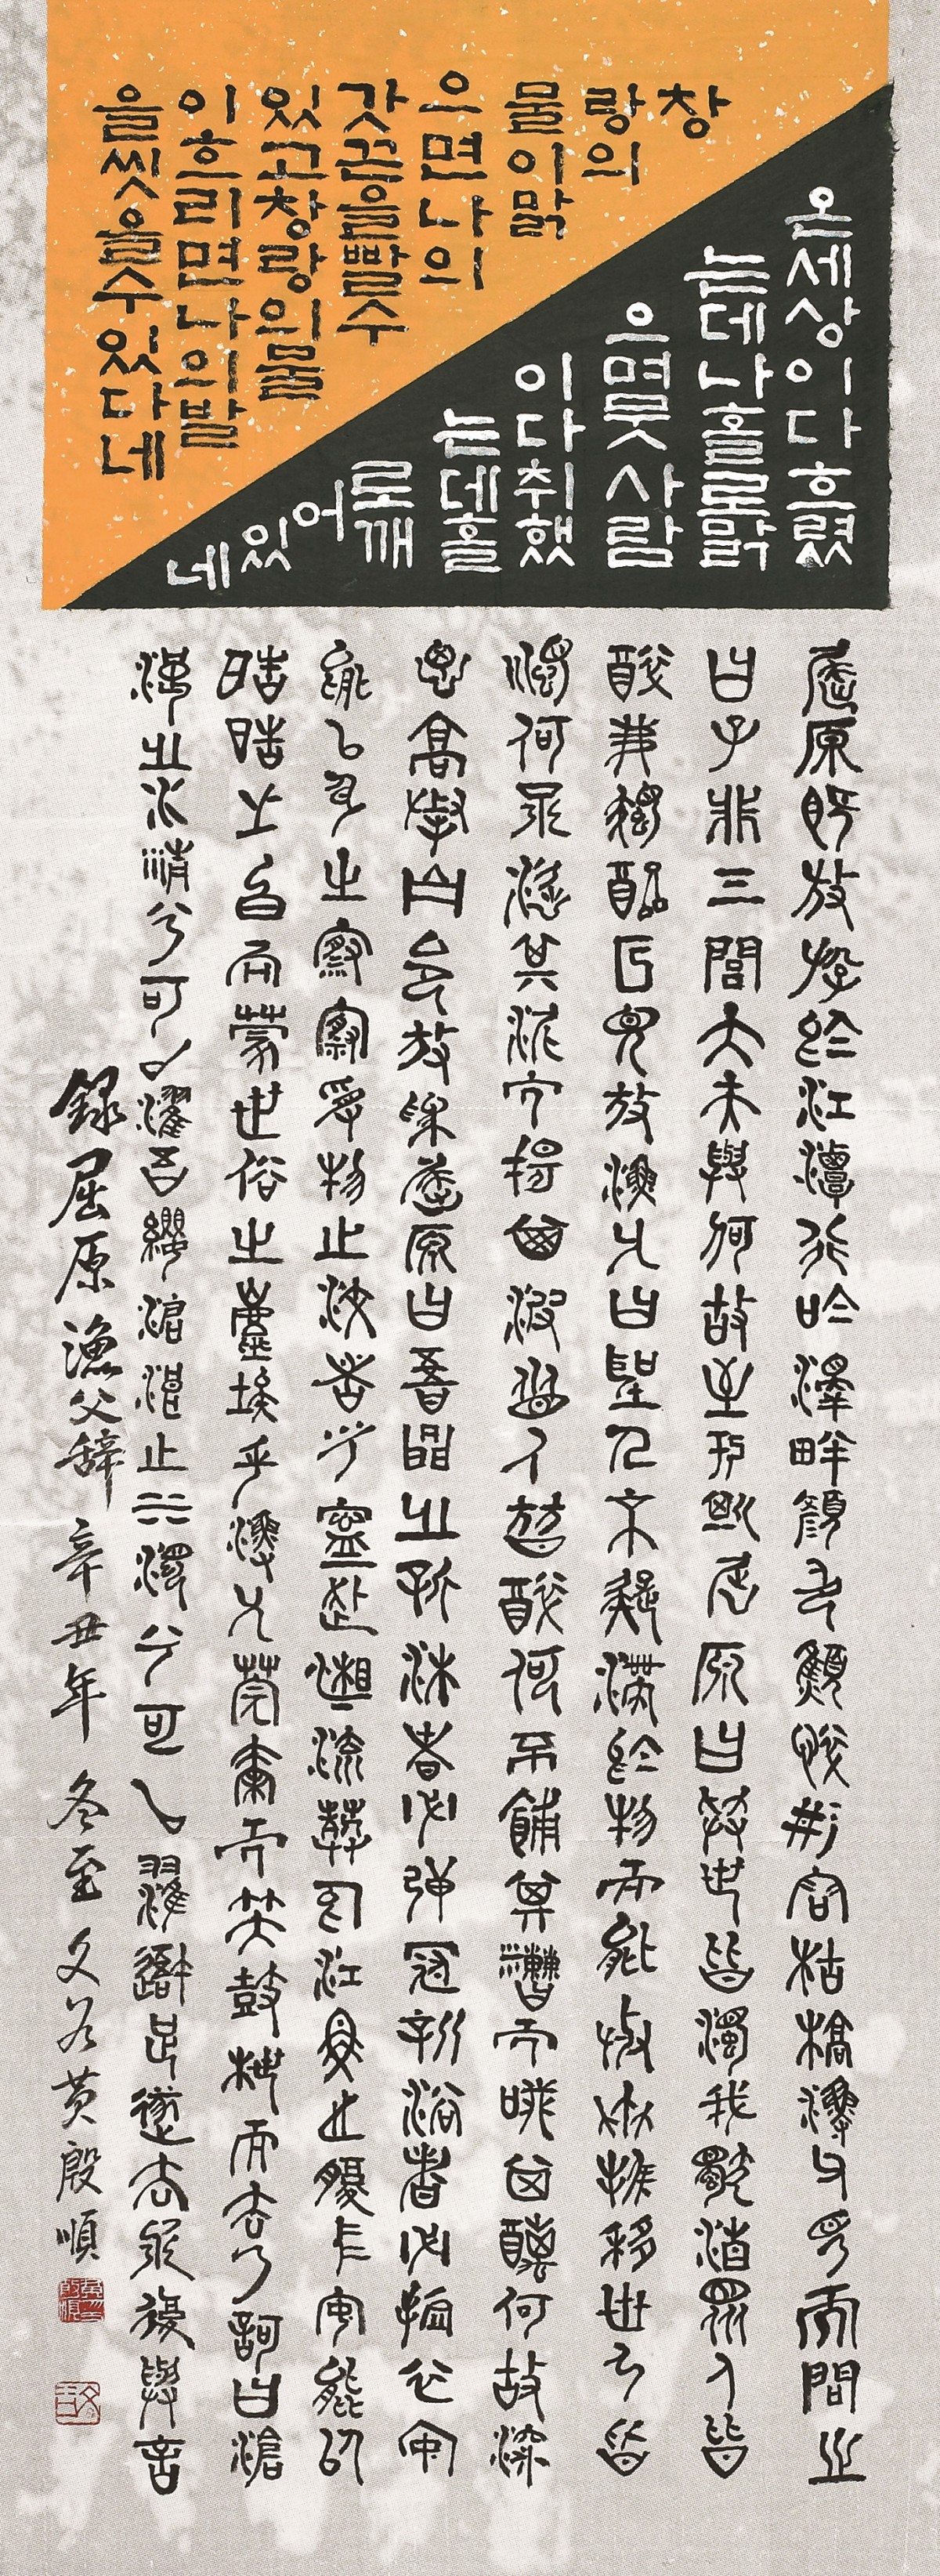 창
랑의
물이맑
으면나의
갓끈을빨수
있고창랑의물
이흐리면나의발
을씻을수있다네
온세상이다흐렸
는데나홀로맑
으며뭇사람
이다취했
는데홀
로깨
어
있
네
屈原既放游於江潭行吟澤畔顏色顦顇形容枯槁漁父見而問之
曰子非三閭大夫與何故至於斯屈原曰擧世皆濁我獨淸衆人皆
醉我獨醒是以見放漁父曰聖人不凝滯於物而能與世推移世人皆
濁何不淈其泥而揚其波衆人皆醉何不餔其糟而歠其醨何故深
思高擧自令放爲屈原曰吾聞之新沐者必彈冠新浴者必振衣安
能以身之察察受物之汶汶者乎寧赴湘流葬於江魚之腹中安能以
皓皓之白而蒙世俗之塵埃乎漁父莞爾而笑鼓枻而去乃歌曰滄
浪之水淸兮可以濯吾纓滄浪之水濁兮可以濯吾足遂去不復與言
錄屈原漁父辭 辛丑年 冬至 黃殷順